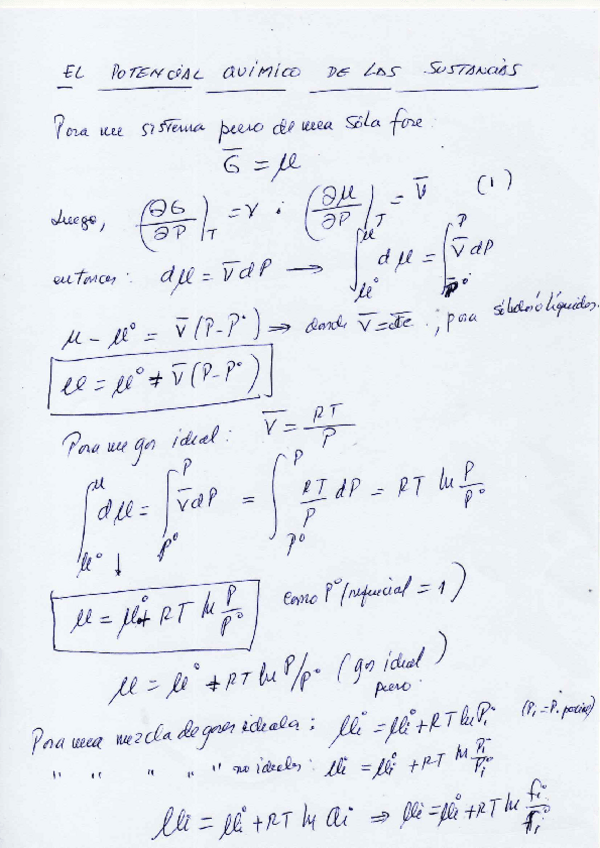 EL POTENCIAL QUÍMICO DE LAS SUSTANCIAS
Para un sistema puro de una sóla fase:
G̅ = μ
Luego, (∂G/∂P)_T = V ; (∂μ/∂P)_T = V̅ (1)
entonces: dμ = V̅dP → ∫_{μ°}^{μ} dμ = ∫_{P°}^{P} V̅dP
μ - μ° = V̅(P-P°) ⇒ donde V̅=cte. ; para sólidos ó líquidos.
μ = μ° + V̅(P-P°)
Para un gas ideal: V̅ = RT/P
∫_{μ°}^{μ} dμ = ∫_{P°}^{P} V̅dP = ∫_{P°}^{P} RT/P dP = RT ln P/P°
↓
μ = μ° + RT ln P/P° como P° (referencial = 1)
μ = μ° + RT ln P/P° (gas ideal puro)
Para una mezcla de gases ideales: μi = μi° + RT ln Pi (Pi = P. parcial)
" " " " " no ideales: μi = μi° + RT ln Pi/Pi°
μi = μi° + RT ln ai ⇒ μi = μi° + RT ln